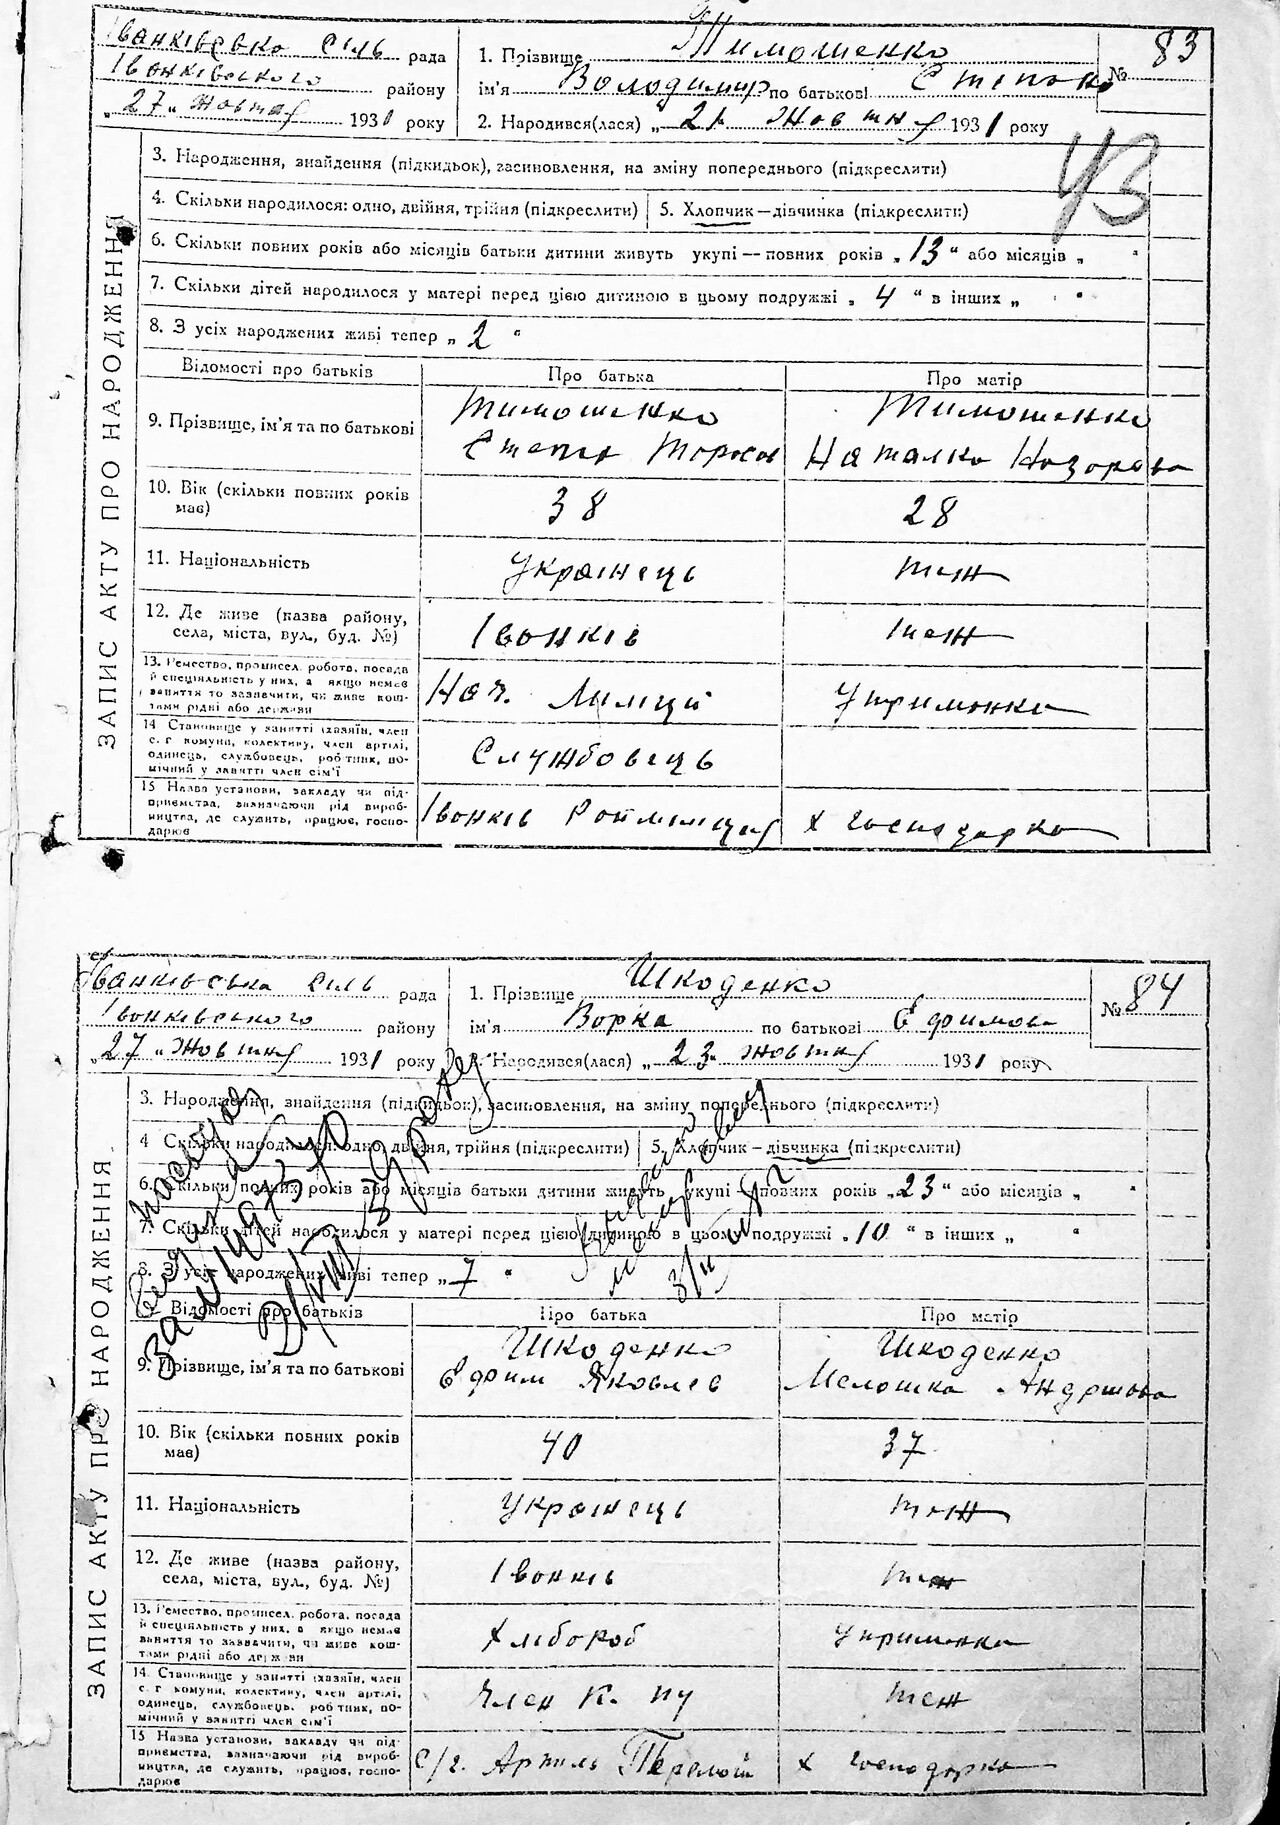 Іванківська сіль рада
Іванківського району
"27" жовтня 1931 року
1. Прізвище Тимошенко
ім'я Володимир по батькові Степано
2. Народився(лася) „21" жовтня 1931 року
№ 83
43
ЗАПИС АКТУ ПРО НАРОДЖЕННЯ
3. Народження, знайдення (підкидьок), засиновлення, на зміну попереднього (підкреслити)
4. Скільки народилося: одно, двійня, трійня (підкреслити)
5. Хлопчик—дівчинка (підкреслити)
6. Скільки повних років або місяців батьки дитини живуть укупі — повних років „13" або місяців „ "
7. Скільки дітей народилося у матері перед цією дитиною в цьому подружжі „4" в інших „ "
8. З усіх народжених живі тепер „2"
Відомості про батьків Про батька Про матір
9. Прізвище, ім'я та по батькові
Тимошенко
Степан Тарасов
Тимошенко
Наталка Назарова
10. Вік (скільки повних років має)
38
28
11. Національність
Українець
теж
12. Де живе (назва району,
села, міста, вул., буд. №)
Іванків
теж
13. Ремество, промисел, робота, посада
й спеціяльність у них, а якщо немає
заняття то зазначити, чи живе кош-
тами рідні або держави
Нач. Міліції
Утриманка
14 Становище у занятті (хазяїн, член
с. г комуни, колективу, член артілі,
одинець, службовець, робітник, по-
мічний у занятті член сім'ї
Службовець
15 Назва установи, закладу чи під-
приємства, зазначаючи рід вироб-
ництва, де служить, працює, госпо-
дарює
Іванків Райміліція
х господарка
Іванківська сіль рада
Іванківського району
"27" жовтня 1931 року
1. Прізвище Шкоденко
ім'я Ворка по батькові Єфримова
2. Народився(лася) „23" жовтня 1931 року
№ 84
ЗАПИС АКТУ ПРО НАРОДЖЕННЯ
3. Народження, знайдення (підкидьок), засиновлення, на зміну попереднього (підкреслити)
4 Скільки народилося: одно, двійня, трійня (підкреслити)
5. Хлопчик—дівчинка (підкреслити)
6. Скільки повних років або місяців батьки дитини живуть укупі — повних років „23" або місяців „ "
7. Скільки дітей народилося у матері перед цією дитиною в цьому подружжі „10" в інших „ "
8. З усіх народжених живі тепер „7"
Відомості про батьків Про батька Про матір
9. Прізвище, ім'я та по батькові
Шкоденко
Єфрим Яковлев
Шкоденко
Мелашка Андриєва
10. Вік (скільки повних років має)
40
37
11. Національність
Українець
теж
12. Де живе (назва району,
села, міста, вул., буд. №)
Іванків
теж
13. Ремество, промисел, робота, посада
й спеціяльність у них, а якщо немає
заняття то зазначити, чи живе кош-
тами рідні або держави
Хлібороб
Утриманка
14. Становище у занятті (хазяїн, член
с. г комуни, колективу, член артілі,
одинець, службовець, робітник, по-
мічний у занятті член сім'ї
Член к.
теж
15 Назва установи, закладу чи під-
приємства, зазначаючи рід вироб-
ництва, де служить, працює, госпо-
дарює
С/г. Артиль
х господарка
паспорт